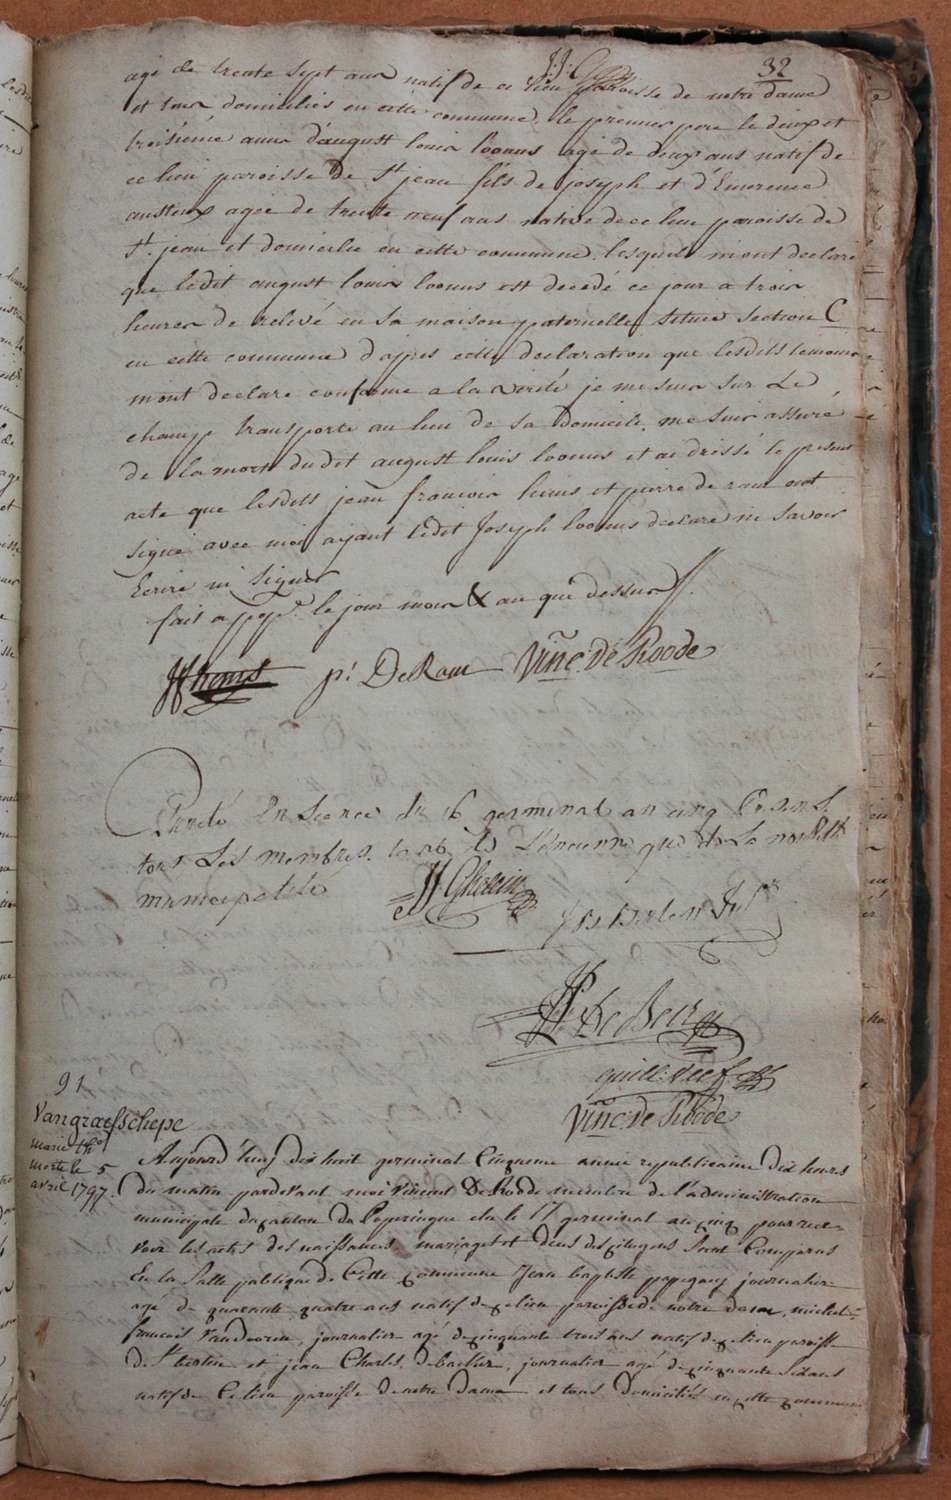 32
agé de trente sept ans natif de ce lieu paroisse de notre dame
et tous domiciliés en cette commune, le premier pere le deux et
troisiéme amis d'august louis loonus agé de deux ans natif de
ce lieu paroisse de St jean fils de joseph et d'Emerence
agée de trente neuf ans native de ce lieu paroisse de
St jean et domicilie en cette commune, lesquels m'ont declaré
que ledit august louis loonus est decedé ce jour a trois
heures de relevé en sa maison paternelle située section C
en cette commune d'apres cette declaration que lesdits temoins
m'ont declaré conforme a la verité je me suis sur le
champ transporte au lieu de sa domicile, me suis assuré
de la mort dudit august louis loonus et ai dressé le present
acte que lesdits jean francois heins et pierre de raeu ont
signé avec moi ayant ledit Joseph loonus declaré ne savoir
Ecrire ni signer
fait a pop.e le jour mois & an que dessus
p: DeRaeu Vinc: de Roode
en seance du 16 germinal an cinq
tous Les membres
municipalité
JJ Ghelein
JP De Beir
guill: Neef
Vinc: de Roode
91
Vangraefschepe
marie th:
morte le 5
avril 1797.
Aujourd'huy dix huit germinal Cinquieme année republicaine dix heures
du matin pardevant moi vincent De Roode membre de l'administration
municipale du canton du Poperingue elu le 17 germinal an cinq pour rece-
voir les actes des naissances, mariages et deces des citoyens Sont Comparus
En la Salle publique de Cette commune Jean baptiste papegaey journalier
agé de quarante quatre ans natif de ce lieu paroisse de notre dame, michel
francois Vandooren, journalier agé de cinquante trois ans natif de ce lieu paroisse
de St bertin et jean Charles debacker, journalier agé de cinquante Six ans
natif de Ce lieu paroisse de notre Dame et tous domiciliés en cette commune